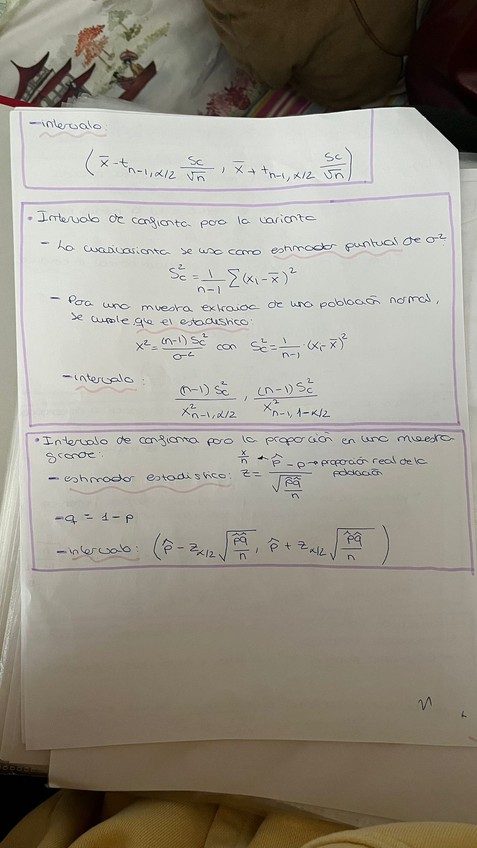 - intervalo
(x̄ - t n-1, α/2 Sc/√n , x̄ + t n-1, α/2 Sc/√n)
• Intervalo de confianza para la varianza
- La cuasivarianza se usa como estimador puntual de σ²
Sc² = 1/(n-1) Σ(xi - x̄)²
- Para una muestra extraída de una población normal,
se cumple que el estadístico:
x² = (n-1) Sc²/σ² con Sc² = 1/(n-1) · (xi - x̄)²
- intervalo :
(n-1) Sc²/x² n-1, α/2 , (n-1) Sc²/x² n-1, 1-α/2
• Intervalo de confianza para la proporción en una muestra
grande:
- estimador estadístico: z = (x/n ← p̂ - p → proporción real de la población)/√(p̂q̂/n)
- q = 1 - p
- intervalo: (p̂ - z α/2 √(p̂q̂/n), p̂ + z α/2 √(p̂q̂/n))